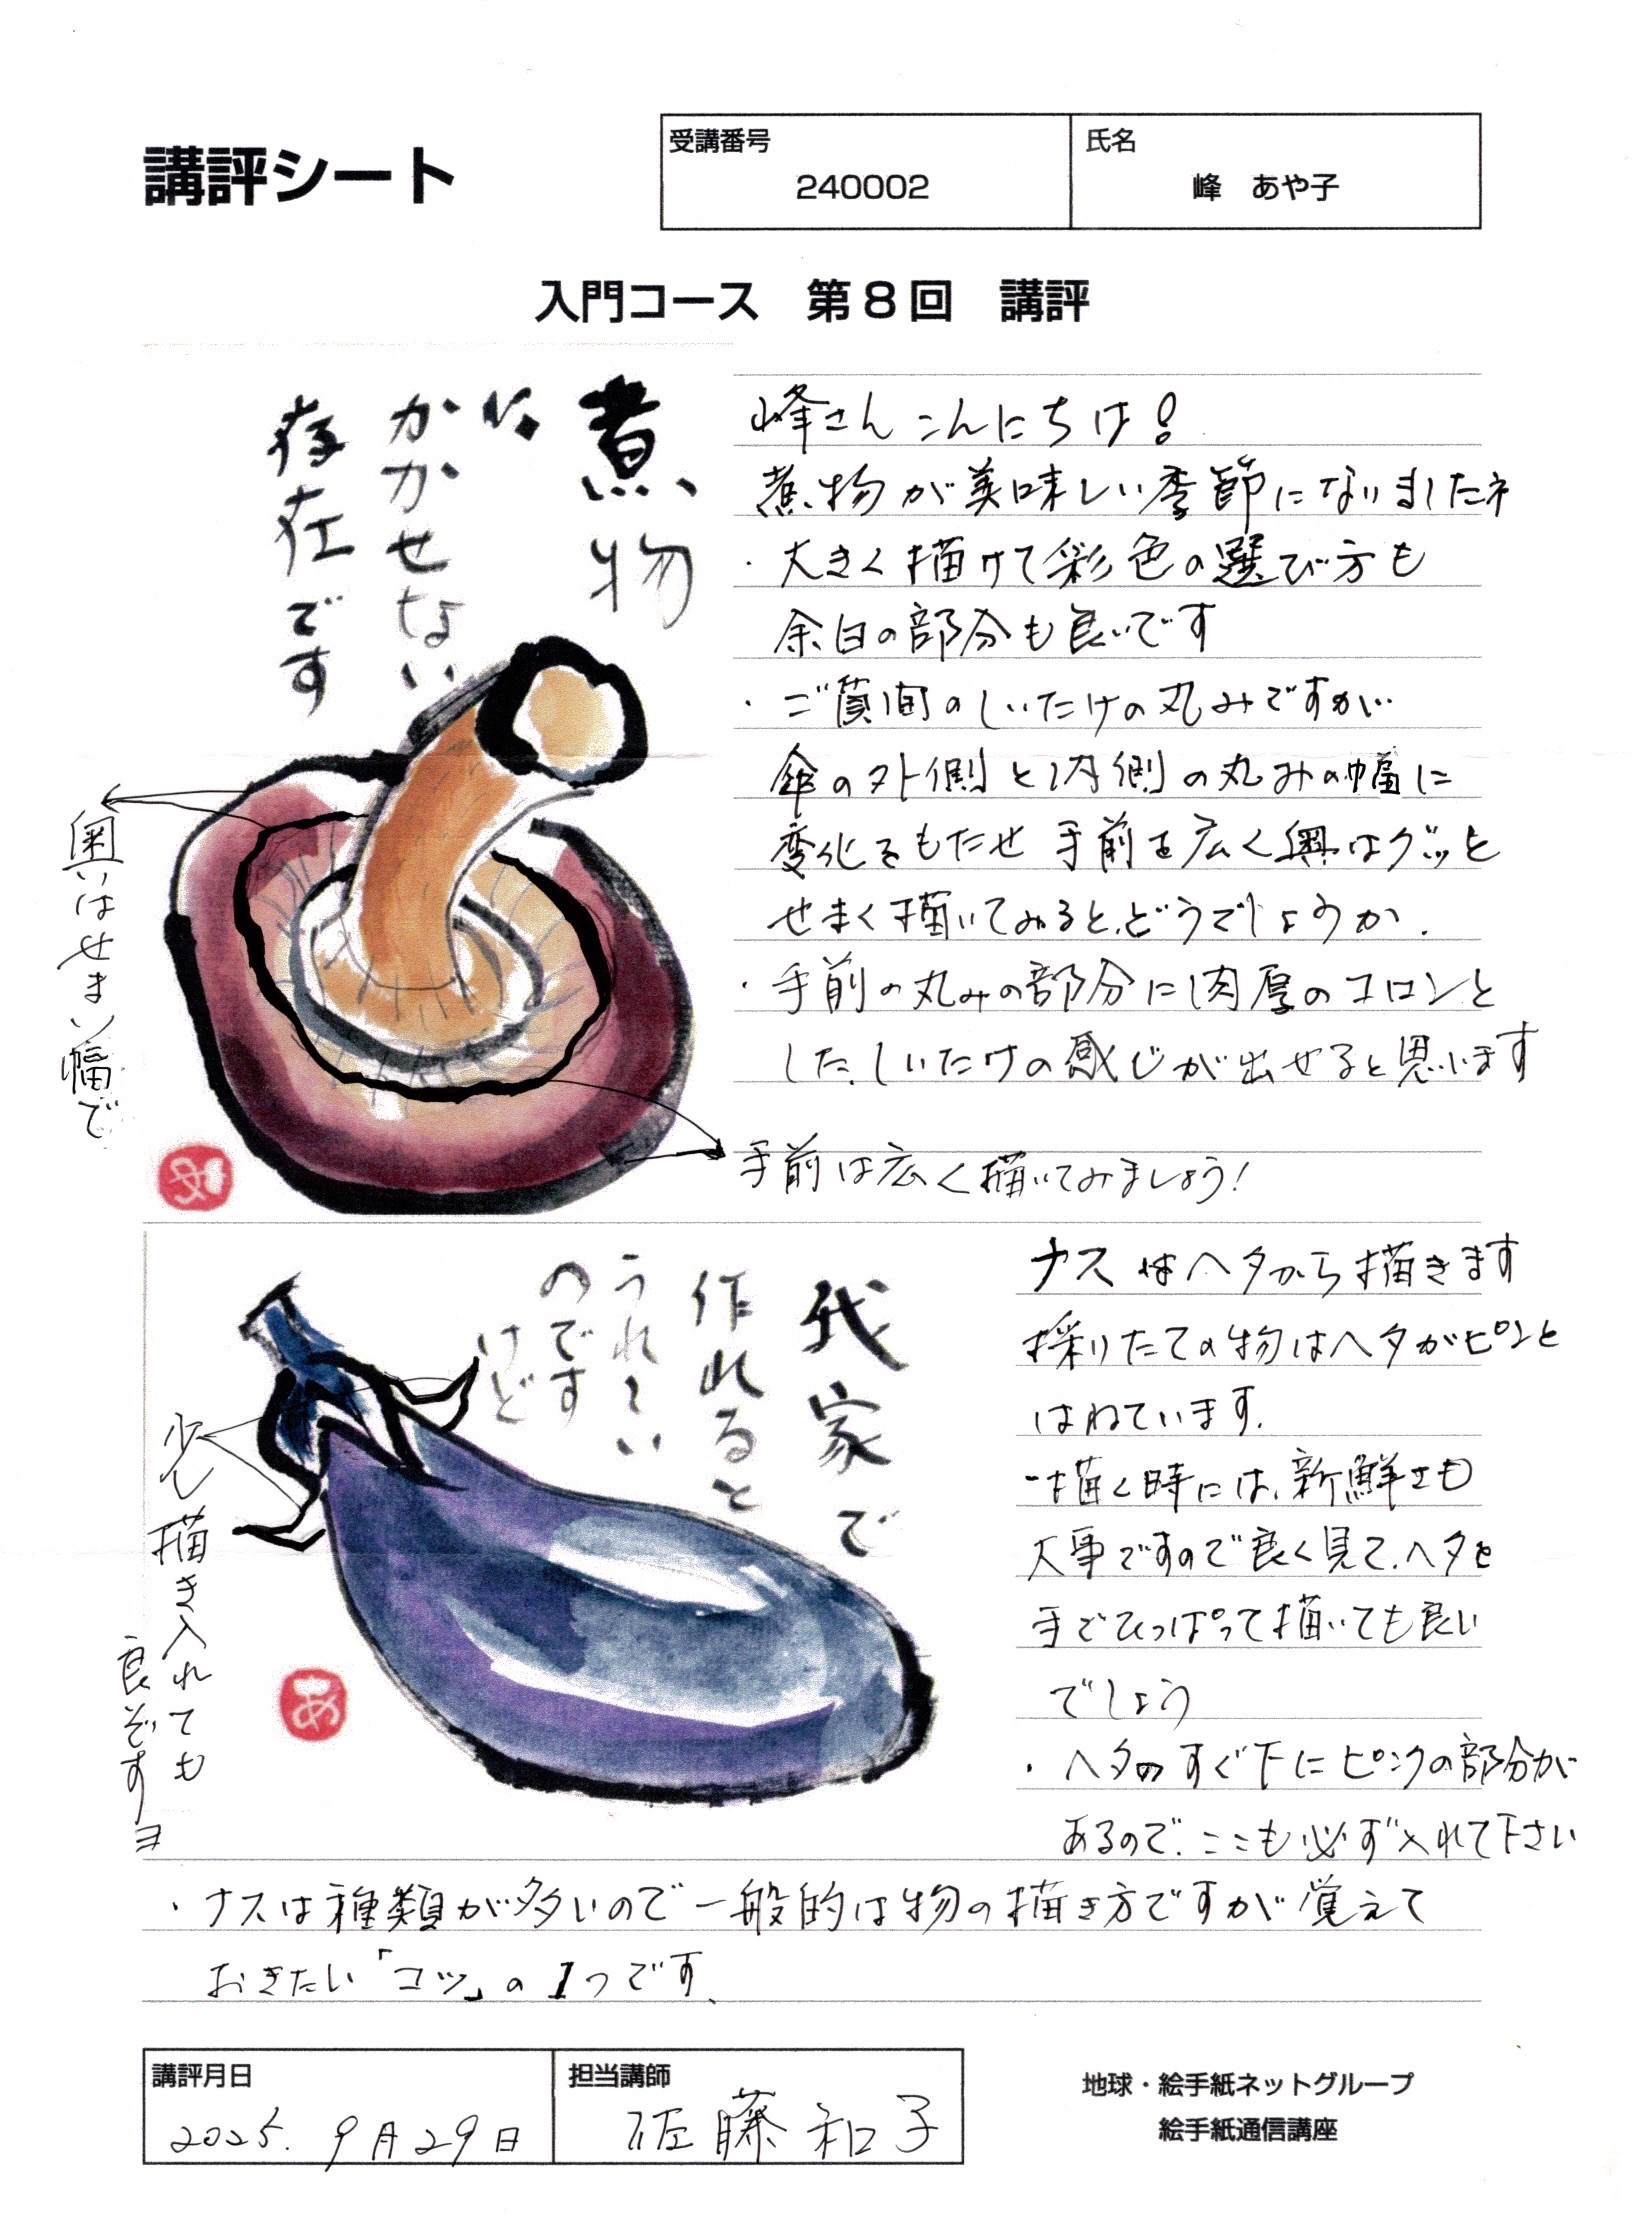 講評シート
受講番号
240002
氏名
峰 あや子
入門コース 第8回 講評
煮物
に
かかせない
存在です
峰さん こんにちは!
煮物が美味しい季節になりましたネ
・大きく描けて彩色の選び方も
余白の部分も良いです
・ご質問のしいたけの丸みですが…
傘の外側と内側の丸みの幅に
変化をもたせ 手前を広く奥はグッと
せまく描いてみると、どうでしょうか.
・手前の丸みの部分に肉厚のコロンと
した、しいたけの感じが出せると思います
手前は広く描いてみましょう!
奥はせまい幅で
あ
我家で
作れると
うれしい
のです
けど
ナスはヘタから描きます
採りたての物はヘタがピンと
はねています.
・描く時には、新鮮さも
大事ですので良く見て、ヘタを
手でひっぱって描いても良い
でしょう
・ヘタのすぐ下にピンクの部分が
あるので、ここも必ず入れて下さい
少し描き入れても
良いですヨ
あ
・ナスは種類が多いので一般的な物の描き方ですが覚えて
おきたい「コツ」の1つです、
講評月日
2025. 9月29日
担当講師
佐藤和子
地球・絵手紙ネットグループ
絵手紙通信講座